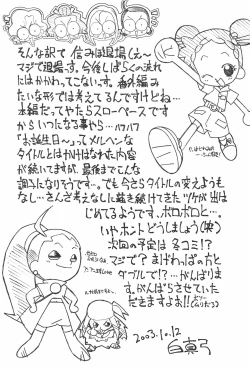 そんな訳で信みは退場〜
マジで退場っす。今後しばらくの流れ
にはかかわってこないす。番外編み
たいな形では考えてるんですけどね…
本編だってやたらスローペースです
からいつになる事やら…ハフハフ
「お誕生日〜」ってメルヘンな
タイトルとはかけはなれた内容
が続いてますが、最後までこんな
調子になりそうです…。でも今さらタイトルの変えようも
なし…さんざ考えなしに描き続けてきたツケが出は
じめてるようです。ボロボロと…。
いやホントどうしましょう(笑)
次回の予定は 冬コミ!?
マジで? まげねっぱの方と
ダブルで!? …がんばりま
す。がんばらさせていた
だきますよぉ!!
2003.10.12